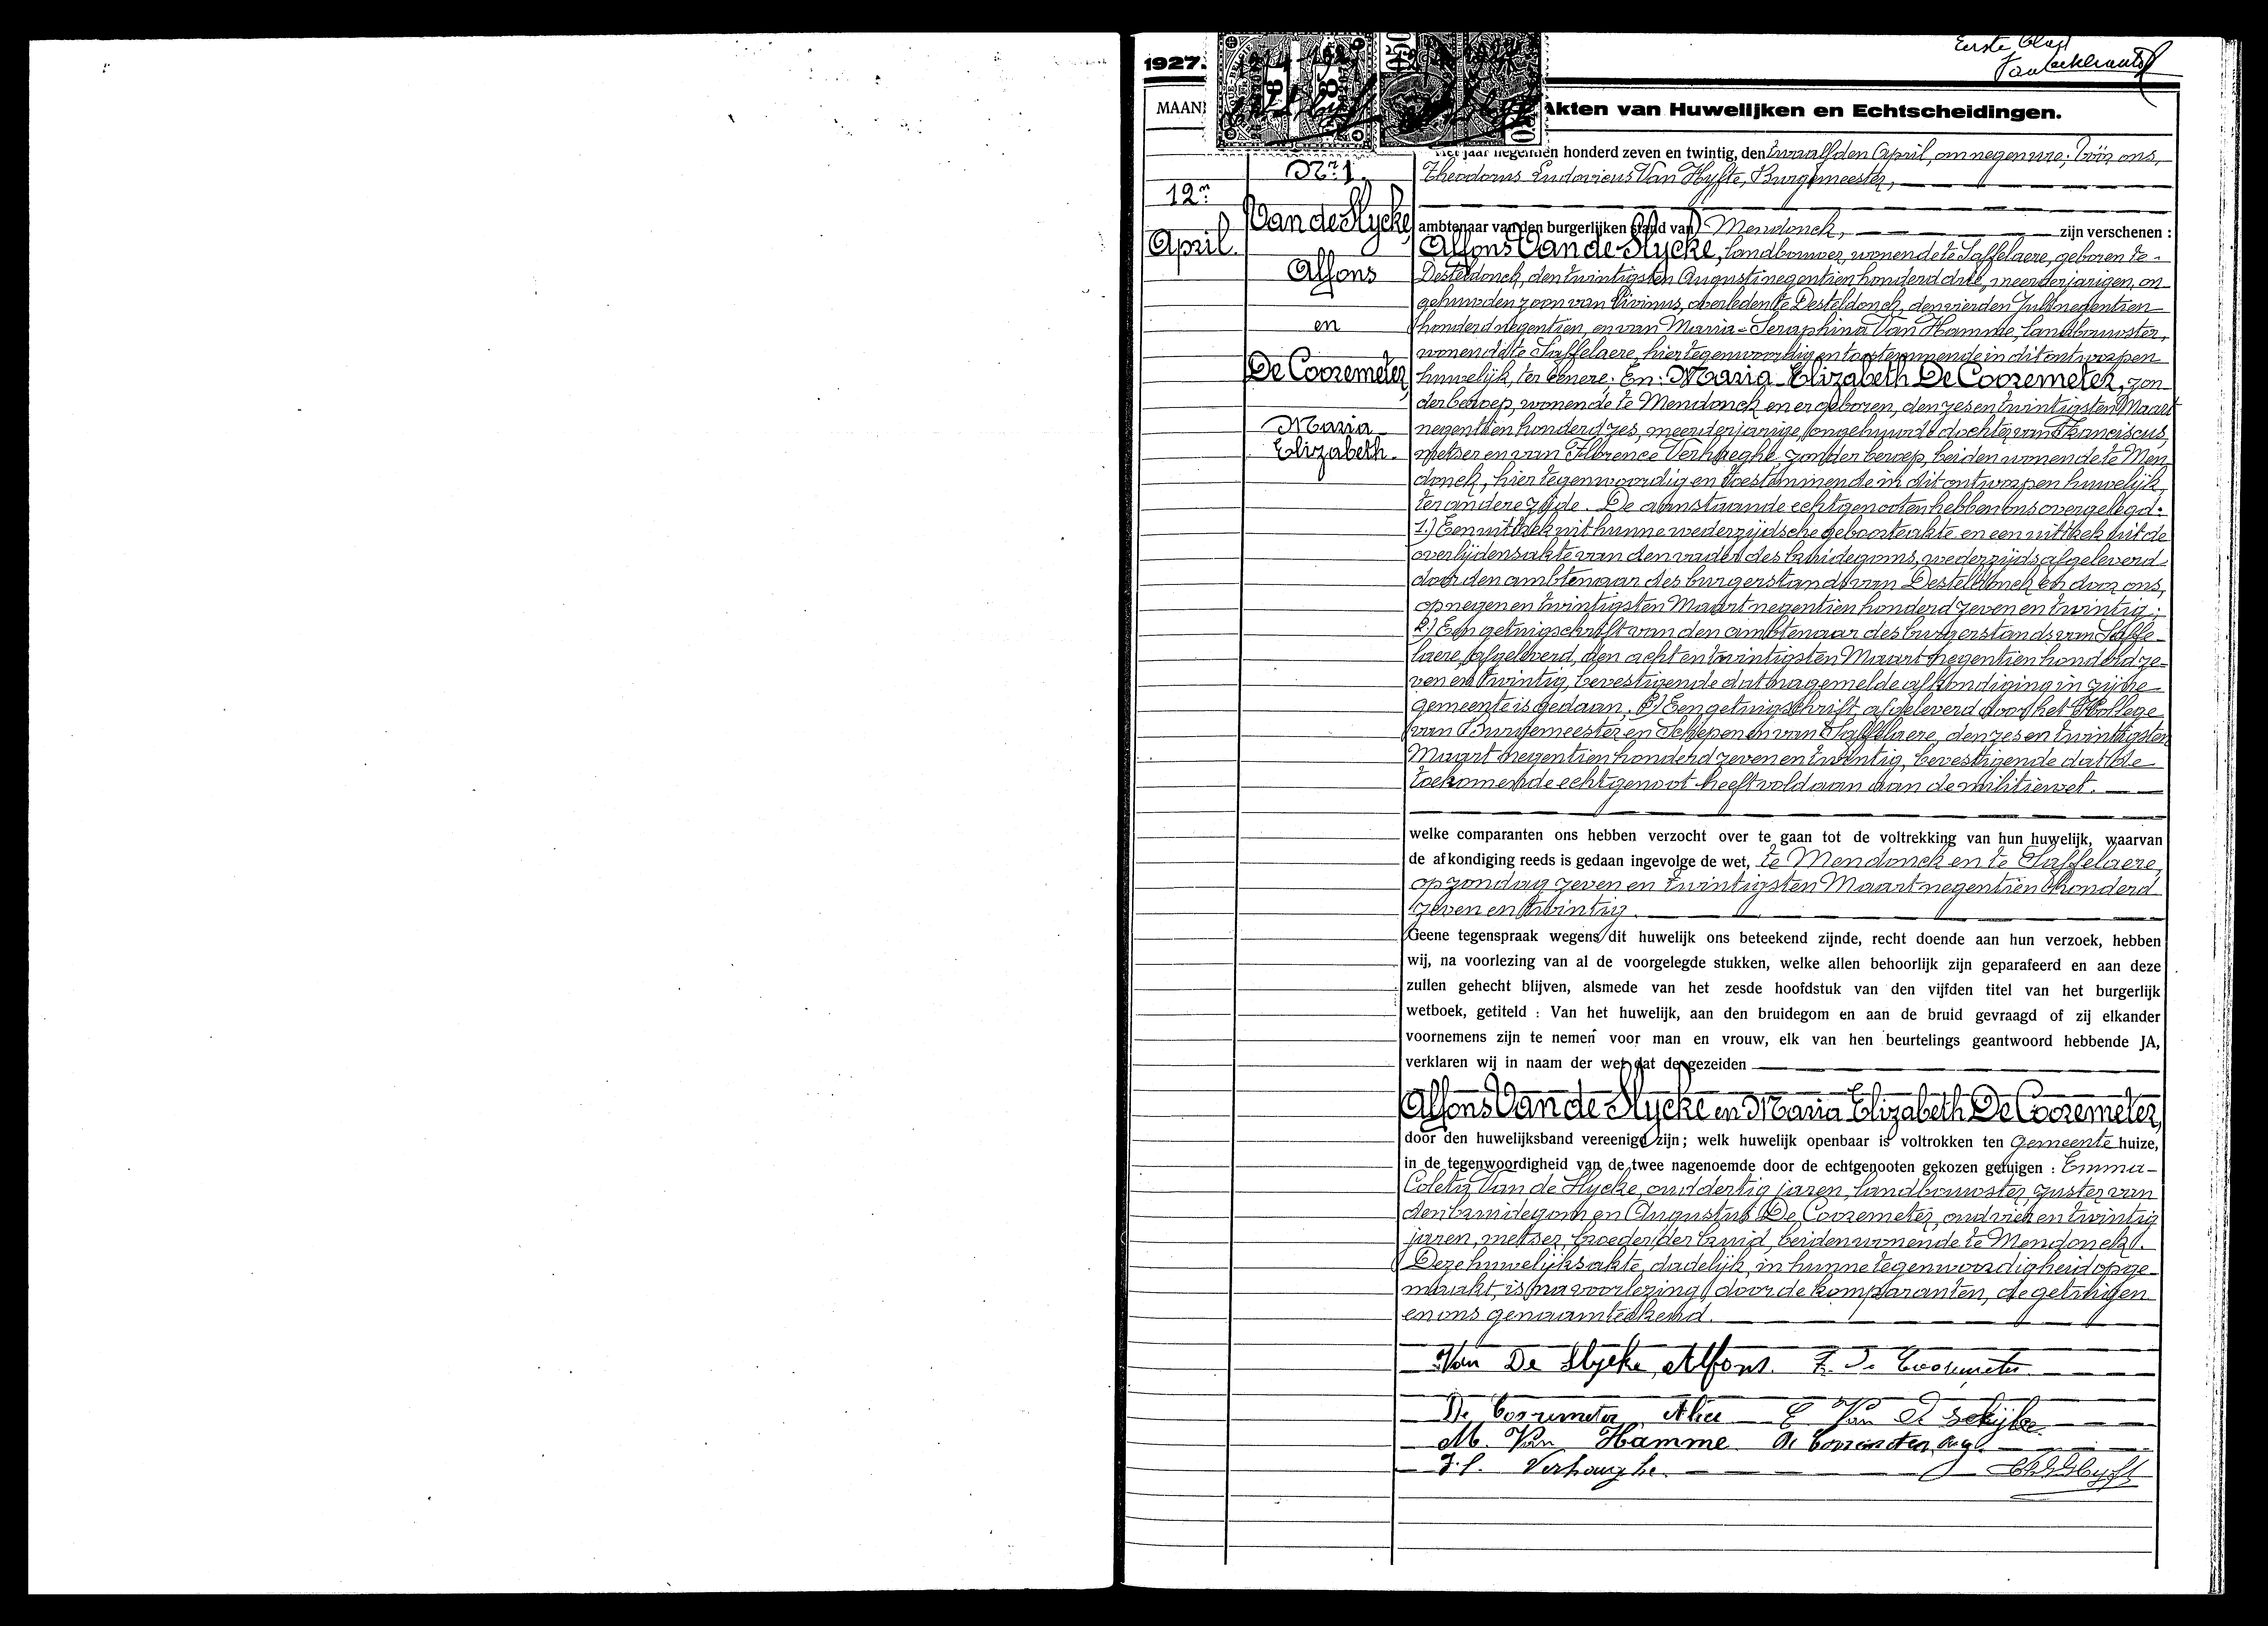 Eerste blad
1927.
MAAN
Akten van Huwelijken en Echtscheidingen.
Nr. 1.
12n
April.
Van de Slycke,
Alfons
en
De Cooremeter,
Maria
Elizabeth.
Het jaar negentien honderd zeven en twintig, den twaalfden April, om negen ure, vóór ons,
Theodorus Ludovicus Van Hyfte, Burgemeester,
ambtenaar van den burgerlijken stand van Mendonck, zijn verschenen :
Alfons Van de Slycke, landbouwer, wonende te Saffelaere, geboren te
Desteldonck, den twintigsten Augusti negentien honderd drie, meerderjarigen, on
gehuwden zoon van Livinus, overleden te Desteldonck, den vierden Juli negentien
honderd negentien, en van Maria-Seraphina Van Hamme, landbouwster,
wonende te Saffelaere, hier tegenwoordig en toestemmende in dit ontworpen
huwelijk, ter eenere; En: Maria Elizabeth De Cooremeter, zon
der beroep, wonende te Mendonck en er geboren, den zes en twintigsten Maart
negentien honderd zes, meerderjarige ongehuwde dochter van Franciscus,
metser en van Florence Verhaeghe, zonder beroep, beiden wonende te Men
donck, hier tegenwoordig en toestemmende in dit ontworpen huwelijk,
ter andere zijde. De aanstaande echtgenooten hebben ons overgelegd:
1.) Een uittrek uit hunne wederzijdsche geboorteakte en een uittrek uit de
overlijdensakte van den vader des bruidegoms, wederzijds afgeleverd
door den ambtenaar des burgerstands van Desteldonck en door ons,
op negen en twintigsten Maart negentien honderd zeven en twintig;
2.) Een getuigschrift van den ambtenaar des burgerstands van Saffe-
laere, afgeleverd, den acht en twintigsten Maart negentien honderd ze-
ven en twintig, bevestigende dat nagemelde afkondiging in zijne
gemeente is gedaan. 3.) Een getuigschrift, afgeleverd door het Kollege
van Burgemeester en Schepenen van Saffelaere, den zes en twintigsten
Maart negentien honderd zeven en twintig, bevestigende dat de
toekomende echtgenoot heeft voldaan aan de militiewet.
welke comparanten ons hebben verzocht over te gaan tot de voltrekking van hun huwelijk, waarvan
de afkondiging reeds is gedaan ingevolge de wet, te Mendonck en te Saffelaere,
op zondag zeven en twintigsten Maart negentien honderd
zeven en twintig.
Geene tegenspraak wegens dit huwelijk ons beteekend zijnde, recht doende aan hun verzoek, hebben
wij, na voorlezing van al de voorgelegde stukken, welke allen behoorlijk zijn geparafeerd en aan deze
zullen gehecht blijven, alsmede van het zesde hoofdstuk van den vijfden titel van het burgerlijk
wetboek, getiteld : Van het huwelijk, aan den bruidegom en aan de bruid gevraagd of zij elkander
voornemens zijn te nemen voor man en vrouw, elk van hen beurtelings geantwoord hebbende JA,
verklaren wij in naam der wet dat de gezeiden
Alfons Van de Slycke en Maria Elizabeth De Cooremeter,
door den huwelijksband vereenigd zijn; welk huwelijk openbaar is voltrokken ten Gemeente huize,
in de tegenwoordigheid van de twee nagenoemde door de echtgenooten gekozen getuigen : Emma-
Coleta Van de Slycke, oud dertig jaren, landbouwster, zuster van
den bruidegom en Augustus De Cooremeter, oud vier en twintig
jaren, metser, broeder der bruid, beiden wonende te Mendonck.
Deze huwelijksakte, dadelijk, in hunne tegenwoordigheid opge-
maakt, is, na voorlezing, door de komparanten, de getuigen
en ons genaamteekend.
Van De Slycke, Alfons. F. De Cooremeter
De Cooremeter Alice E. Van De Slijke
M. Van Hamme De Cooremeter, Aug.
F. l. Verhaeghe.